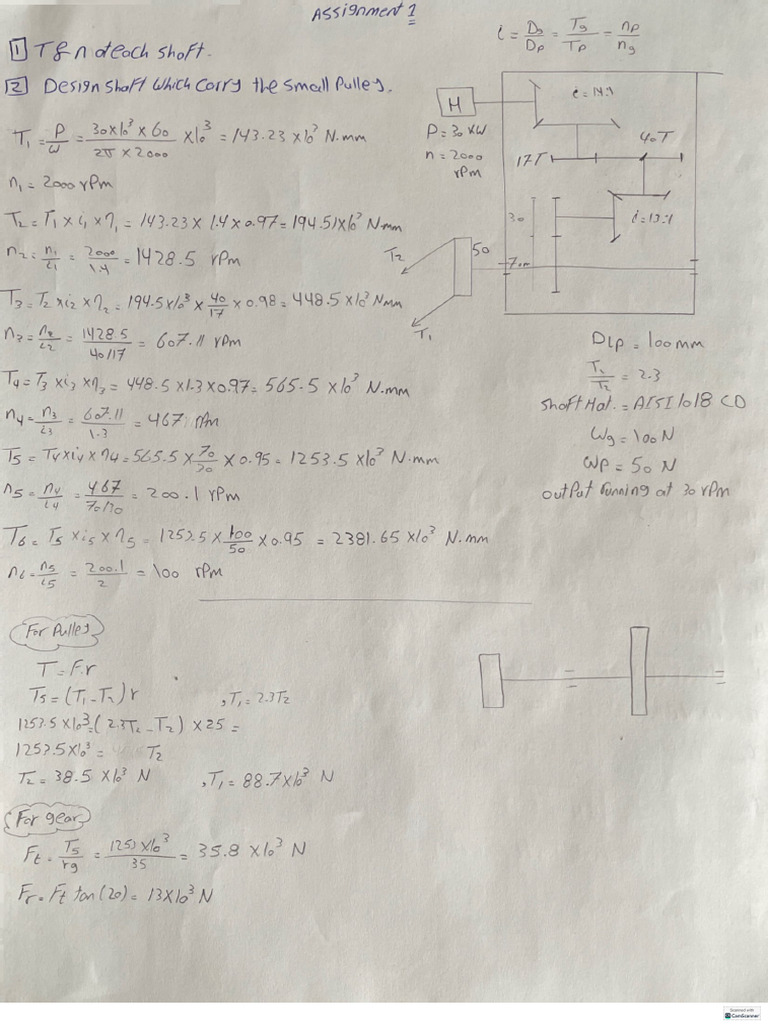 Assignment 1
1 T & n at each shaft.
2 Design shaft which carry the small Pulley.
i = Dg/Dp = Tg/Tp = np/ng
T1 = P/W = 30x10³ x 60 / 2π x 2000 x10³ = 143.23 x10³ N.mm
n1 = 2000 rPm
T2 = T1 x i1 x η1 = 143.23 x 1.4 x 0.97 = 194.51x10³ N.mm
n2 = n1/i1 = 2000/1.4 = 1428.5 rPm
T3 = T2 x i2 x η2 = 194.5x10³ x 40/17 x 0.98 = 448.5 x10³ N.mm
n3 = n2/i2 = 1428.5 / 40/17 = 607.11 rPm
T4 = T3 x i3 x η3 = 448.5 x 1.3 x 0.97 = 565.5 x10³ N.mm
n4 = n3/i3 = 607.11/1.3 = 467 rPm
T5 = T4 x i4 x η4 = 565.5 x 70/30 x 0.95 = 1253.5 x10³ N.mm
n5 = n4/i4 = 467 / 70/30 = 200.1 rPm
T6 = T5 x i5 x η5 = 1253.5 x 100/50 x 0.95 = 2381.65 x10³ N.mm
n6 = n5/i5 = 200.1/2 = 100 rPm
H
P = 30 KW
n = 2000
rPm
17T
40T
30
50
70
T2
T1
DLP = 100mm
T1/T2 = 2.3
Shaft Mat. = AISI 1018 CD
Wg = 100 N
WP = 50 N
output running at 30 rPm
For Pulley
T = F.r
T5 = (T1 - T2) r , T1 = 2.3T2
1253.5 x10³ = (2.3T2 - T2) x 25 =
1253.5x10³ = T2
T2 = 38.5 x10³ N , T1 = 88.7x10³ N
For gear
Ft = T5/rg = 1253 x10³/35 = 35.8 x10³ N
Fr = Ft tan(20) = 13x10³ N
Scanned with
CamScanner